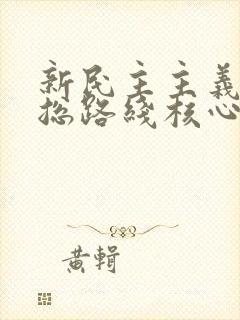 新民主主義
总路綫核心
黄輯